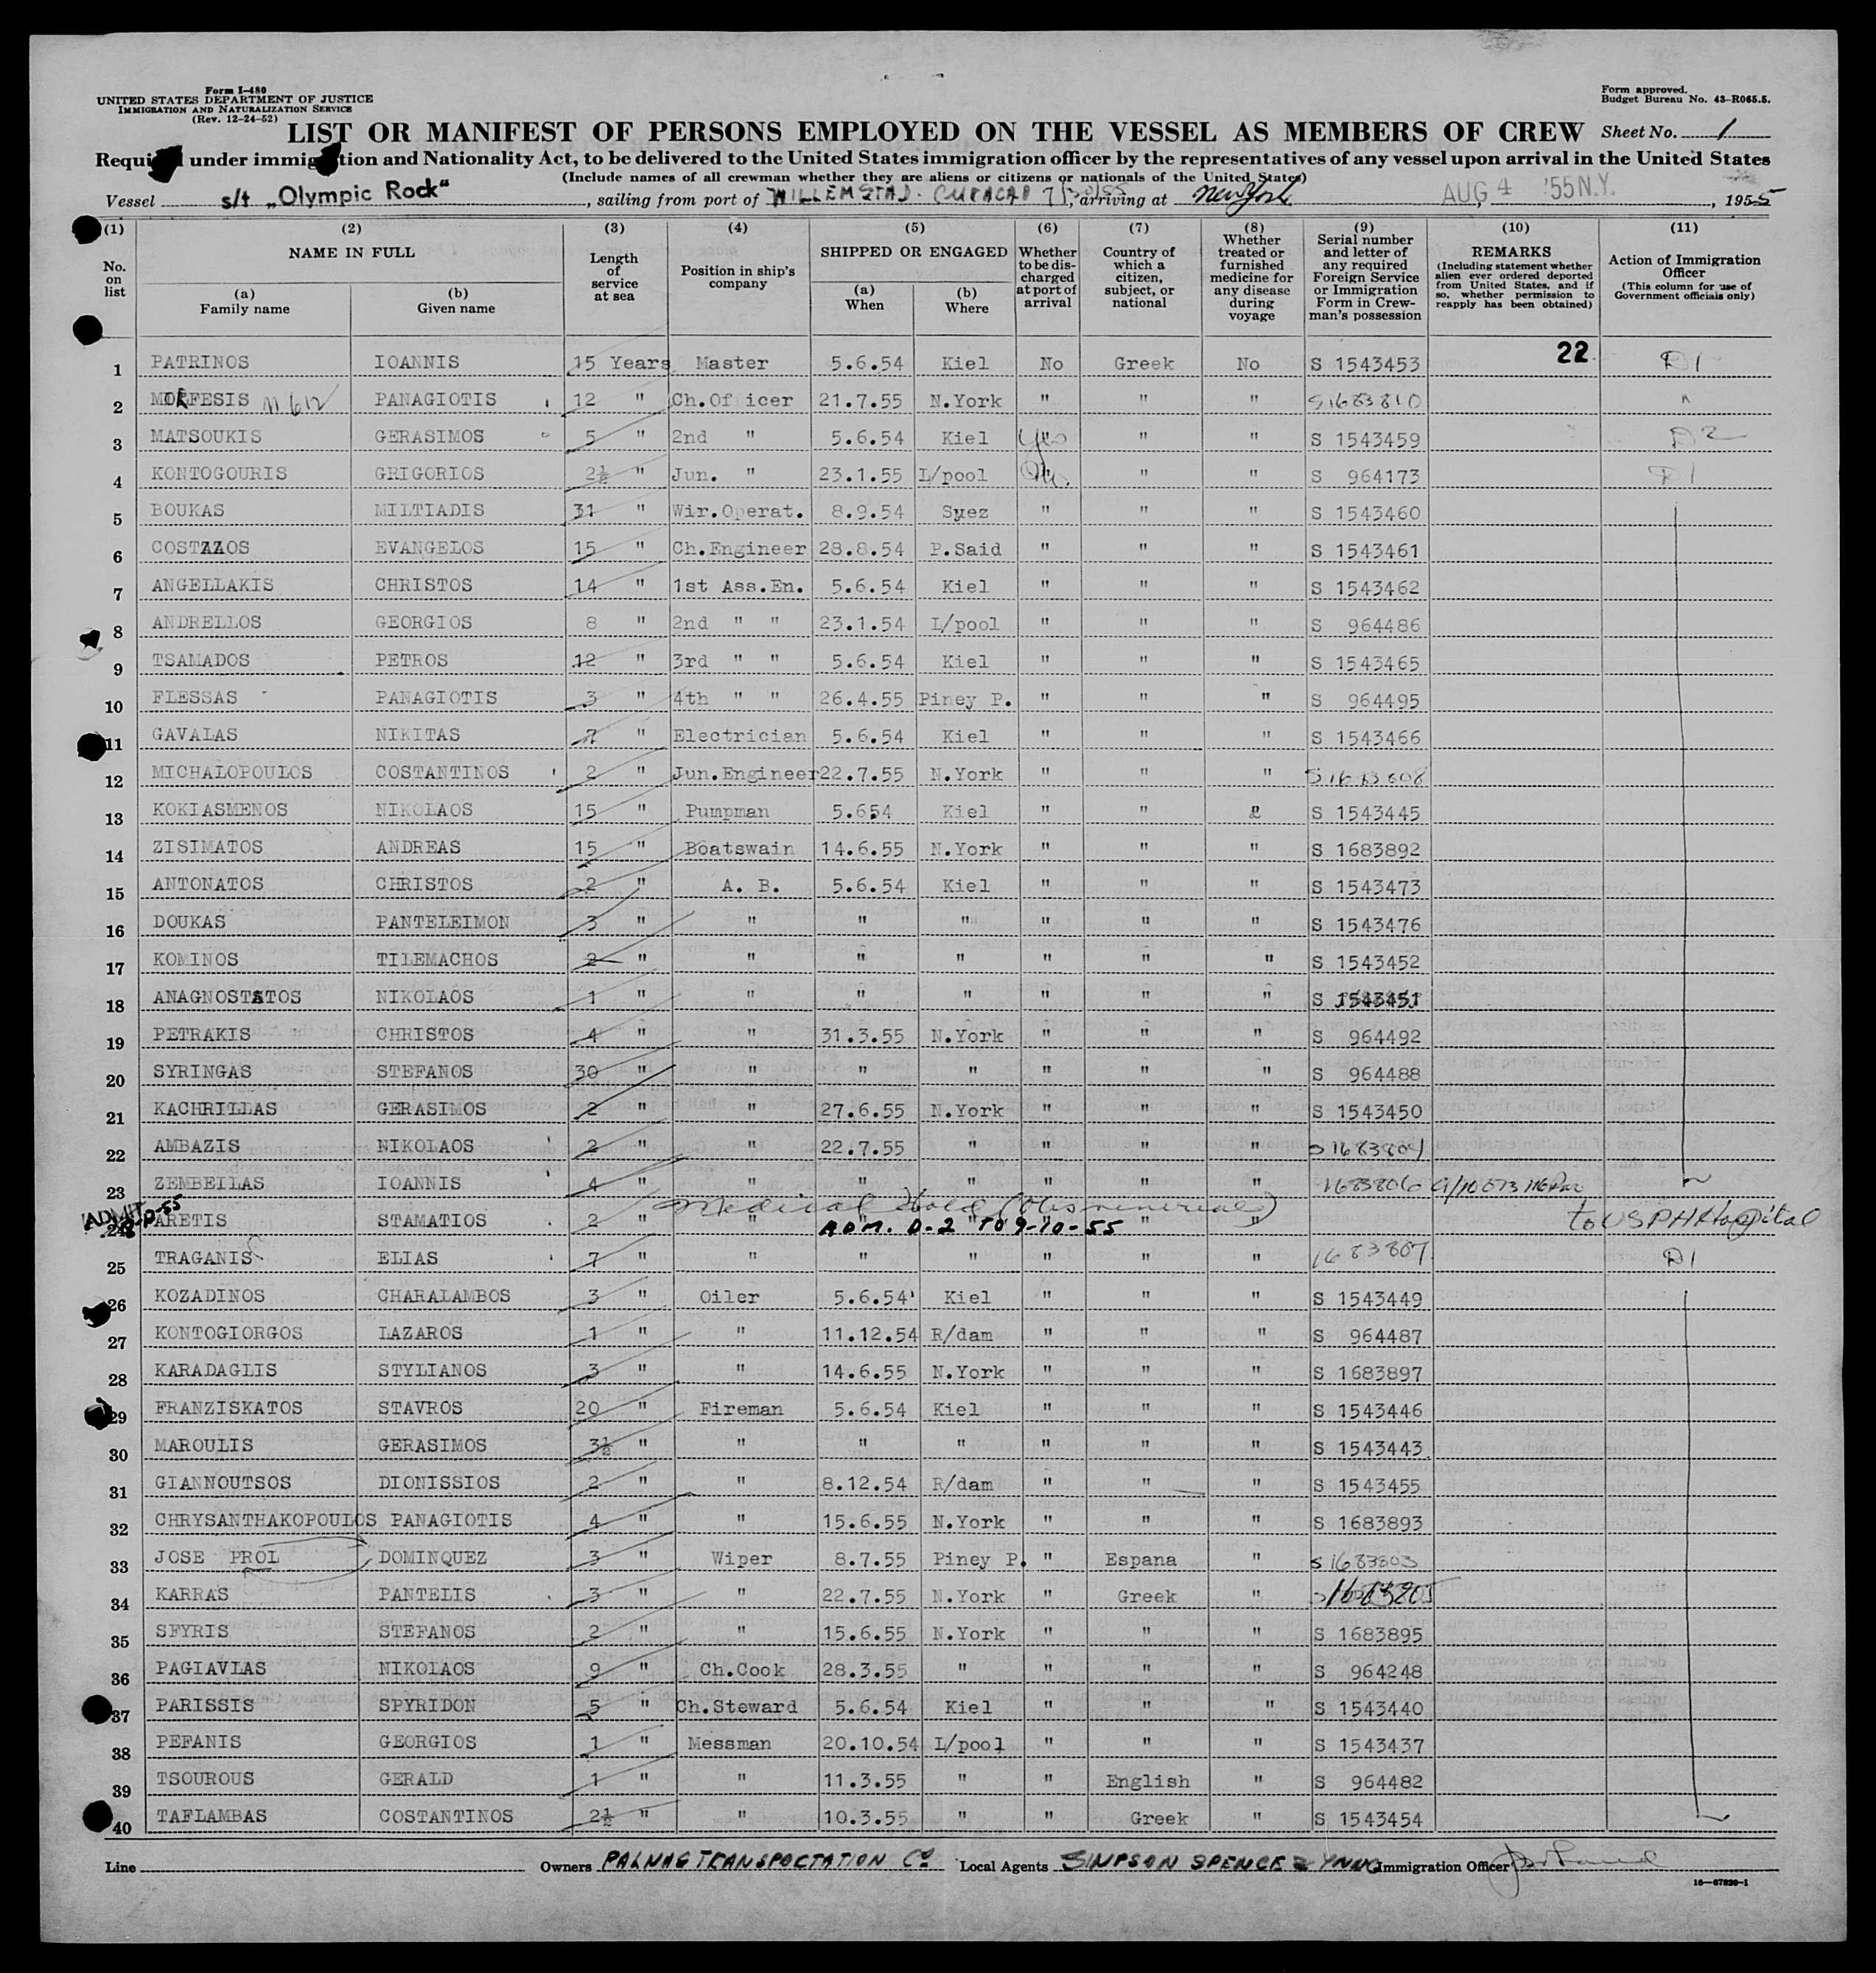 Form I-480
UNITED STATES DEPARTMENT OF JUSTICE
IMMIGRATION AND NATURALIZATION SERVICE
(Rev. 12-24-52)
Form approved.
Budget Bureau No. 43-R065.5.
LIST OR MANIFEST OF PERSONS EMPLOYED ON THE VESSEL AS MEMBERS OF CREW Sheet No. 1
under immigration and Nationality Act, to be delivered to the United States immigration officer by the representatives of any vessel upon arrival in the United States
(Include names of all crewman whether they are aliens or citizens or nationals of the United States)
Vessel s/t „Olympic Rock", sailing from port of WILLEMSTAD. CURACAO 7/30/55, arriving at New York AUG 4 '55 N.Y., 1955
(1) No. on list
(2) NAME IN FULL (a) Family name (b) Given name
(3) Length of service at sea
(4) Position in ship's company
(5) SHIPPED OR ENGAGED (a) When (b) Where
(6) Whether to be discharged at port of arrival
(7) Country of which a citizen, subject, or national
(8) Whether treated or furnished medicine for any disease during voyage
(9) Serial number and letter of any required Foreign Service or Immigration Form in Crewman's possession
(10) REMARKS (Including statement whether alien ever ordered deported from United States, and if so, whether permission to reapply has been obtained)
(11) Action of Immigration Officer (This column for use of Government officials only)
1 PATRINOS IOANNIS 15 Years Master 5.6.54 Kiel No Greek No S 1543453 22 D1
2 MORFESIS PANAGIOTIS 12 " Ch.Of icer 21.7.55 N.York " " " S1683810 "
3 MATSOUKIS GERASIMOS 5 " 2nd " 5.6.54 Kiel Yes " " S 1543459 D2
4 KONTOGOURIS GRIGORIOS 2½ " Jun. " 23.1.55 L/pool No " " S 964173 D1
5 BOUKAS MILTIADIS 31 " Wir.Operat. 8.9.54 Suez " " " S 1543460
6 COSTAZOS EVANGELOS 15 " Ch.Engineer 28.8.54 P.Said " " " S 1543461
7 ANGELLAKIS CHRISTOS 14 " 1st Ass.En. 5.6.54 Kiel " " " S 1543462
8 ANDRELLOS GEORGIOS 8 " 2nd " " 23.1.54 L/pool " " " S 964486
9 TSAMADOS PETROS 12 " 3rd " " 5.6.54 Kiel " " " S 1543465
10 FLESSAS PANAGIOTIS 3 " 4th " " 26.4.55 Piney P. " " " S 964495
11 GAVALAS NIKITAS 7 " Electrician 5.6.54 Kiel " " " S 1543466
12 MICHALOPOULOS COSTANTINOS 2 " Jun.Engineer 22.7.55 N.York " " "
13 KOKIASMENOS NIKOLAOS 15 " Pumpman 5.654 Kiel " " " S 1543445
14 ZISIMATOS ANDREAS 15 " Boatswain 14.6.55 N.York " " " S 1683892
15 ANTONATOS CHRISTOS 2 " A. B. 5.6.54 Kiel " " " S 1543473
16 DOUKAS PANTELEIMON 3 " " " " " " " S 1543476
17 KOMINOS TILEMACHOS 2 " " " " " " " S 1543452
18 ANAGNOSTATOS NIKOLAOS 1 " " " " " " " S 1543451
19 PETRAKIS CHRISTOS 4 " " 31.3.55 N.York " " " S 964492
20 SYRINGAS STEFANOS 30 " " " " " " " S 964488
21 KACHRILLAS GERASIMOS 2 " " 27.6.55 N.York " " " S 1543450
22 AMBAZIS NIKOLAOS 2 " " 22.7.55 " " " " S 1683804
23 ZEMBEILAS IOANNIS 4 " " " " " " " 1683806
Medical Hold
ADMIT
24 ARETIS STAMATIOS 2 " " " " " " " to USPH Hospital
ADM. D-2 TO 9-10-55
25 TRAGANIS ELIAS 7 " " " " " " " 1683807 D1
26 KOZADINOS CHARALAMBOS 3 " Oiler 5.6.54 Kiel " " " S 1543449
27 KONTOGIORGOS LAZAROS 1 " " 11.12.54 R/dam " " " S 964487
28 KARADAGLIS STYLIANOS 3 " " 14.6.55 N.York " " " S 1683897
29 FRANZISKATOS STAVROS 20 " Fireman 5.6.54 Kiel " " " S 1543446
30 MAROULIS GERASIMOS 3½ " " " " " " " S 1543443
31 GIANNOUTSOS DIONISSIOS 2 " " 8.12.54 R/dam " " " S 1543455
32 CHRYSANTHAKOPOULOS PANAGIOTIS 4 " " 15.6.55 N.York " " " S 1683893
33 JOSE PROL DOMINQUEZ 3 " Wiper 8.7.55 Piney P. " Espana " S 1683803
34 KARRAS PANTELIS 3 " " 22.7.55 N.York " Greek "
35 SFYRIS STEFANOS 2 " " 15.6.55 N.York " " " S 1683895
36 PAGIAVLAS NIKOLAOS 9 " Ch.Cook 28.3.55 " " " " S 964248
37 PARISSIS SPYRIDON 5 " Ch.Steward 5.6.54 Kiel " " " S 1543440
38 PEFANIS GEORGIOS 1 " Messman 20.10.54 L/pool " " " S 1543437
39 TSOUROUS GERALD 1 " " 11.3.55 " " English " S 964482
40 TAFLAMBAS COSTANTINOS 2½ " " 10.3.55 " " Greek " S 1543454
Line Owners PALNAG TRANSPOCTATION Co Local Agents SIMPSON SPENCE & YNUG Immigration Officer
16—67829-1